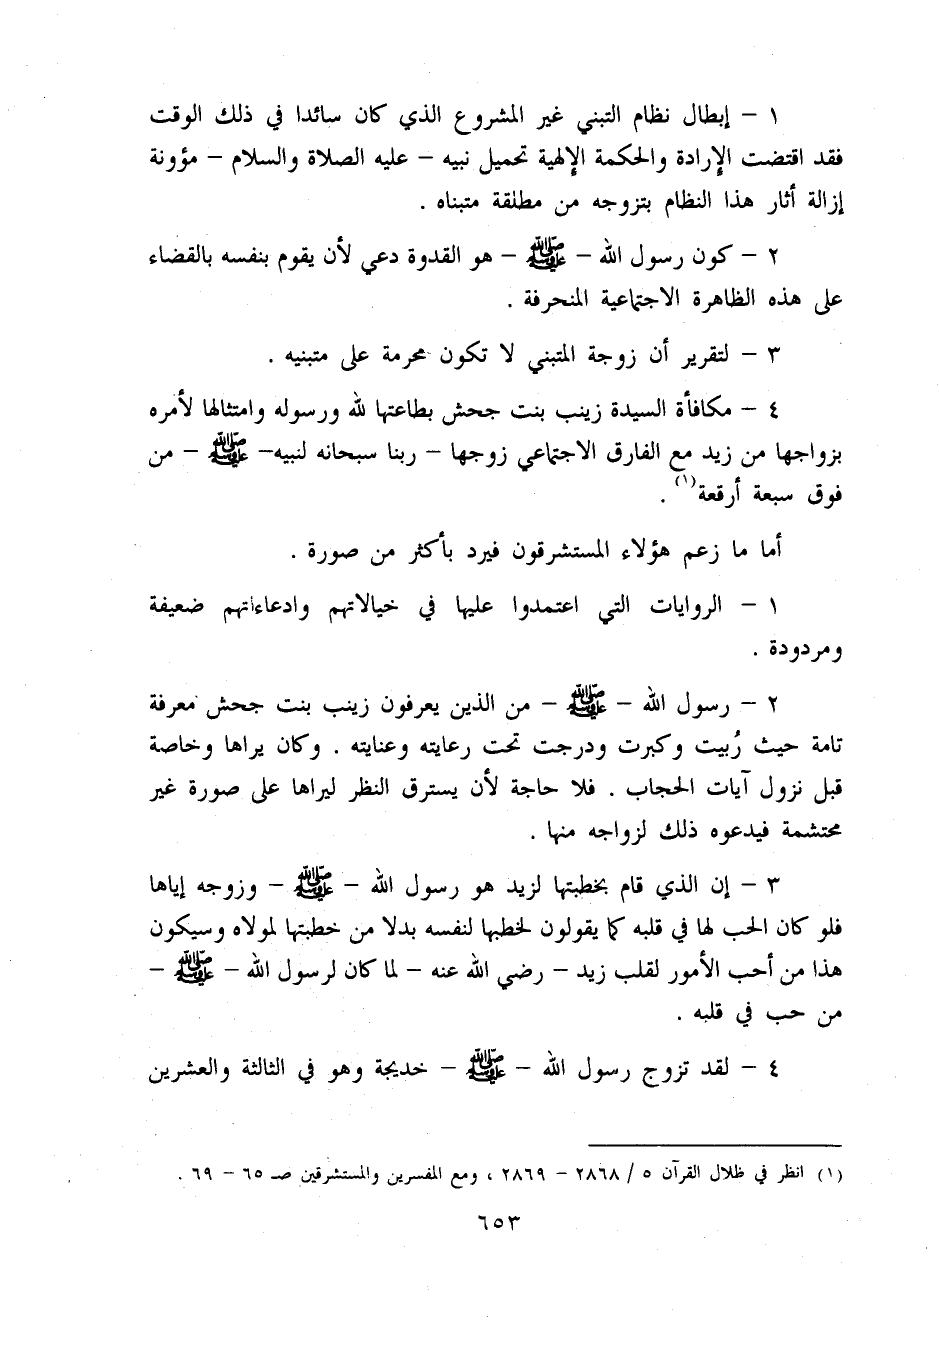 ١ – إبطال نظام التبني غير المشروع الذي كان سائدا في ذلك الوقت
فقد اقتضت الإرادة والحكمة الإلهية تحميل نبيه – عليه الصلاة والسلام – مؤونة
إزالة أثار هذا النظام بتزوجه من مطلقة متبناه .
٢ – كون رسول الله – ﷺ – هو القدوة دعي لأن يقوم بنفسه بالقضاء
على هذه الظاهرة الاجتماعية المنحرفة .
٣ – لتقرير أن زوجة المتبني لا تكون محرمة على متبنيه .
٤ – مكافأة السيدة زينب بنت جحش بطاعتها لله ورسوله وامتثالها لأمره
بزواجها من زيد مع الفارق الاجتماعي زوجها – ربنا سبحانه لنبيه– ﷺ – من
فوق سبعة أرقعة(١) .
أما ما زعم هؤلاء المستشرقون فيرد بأكثر من صورة .
١ – الروايات التي اعتمدوا عليها في خيالاتهم وادعاءاتهم ضعيفة
ومردودة .
٢ – رسول الله – ﷺ – من الذين يعرفون زينب بنت جحش معرفة
تامة حيث رُبيت وكبرت ودرجت تحت رعايته وعنايته . وكان يراها وخاصة
قبل نزول آيات الحجاب . فلا حاجة لأن يسترق النظر ليراها على صورة غير
محتشمة فيدعوه ذلك لزواجه منها .
٣ – إن الذي قام بخطبتها لزيد هو رسول الله – ﷺ – وزوجه إياها
فلو كان الحب لها في قلبه كما يقولون لخطبها لنفسه بدلا من خطبتها لمولاه وسيكون
هذا من أحب الأمور لقلب زيد – رضي الله عنه – لما كان لرسول الله – ﷺ –
من حب في قلبه .
٤ – لقد تزوج رسول الله – ﷺ – خديجة وهو في الثالثة والعشرين
(١) انظر في ظلال القرآن ٥ / ٢٨٦٨ – ٢٨٦٩ ، ومع المفسرين والمستشرقين صـ ٦٥ – ٦٩ .
٦٥٣